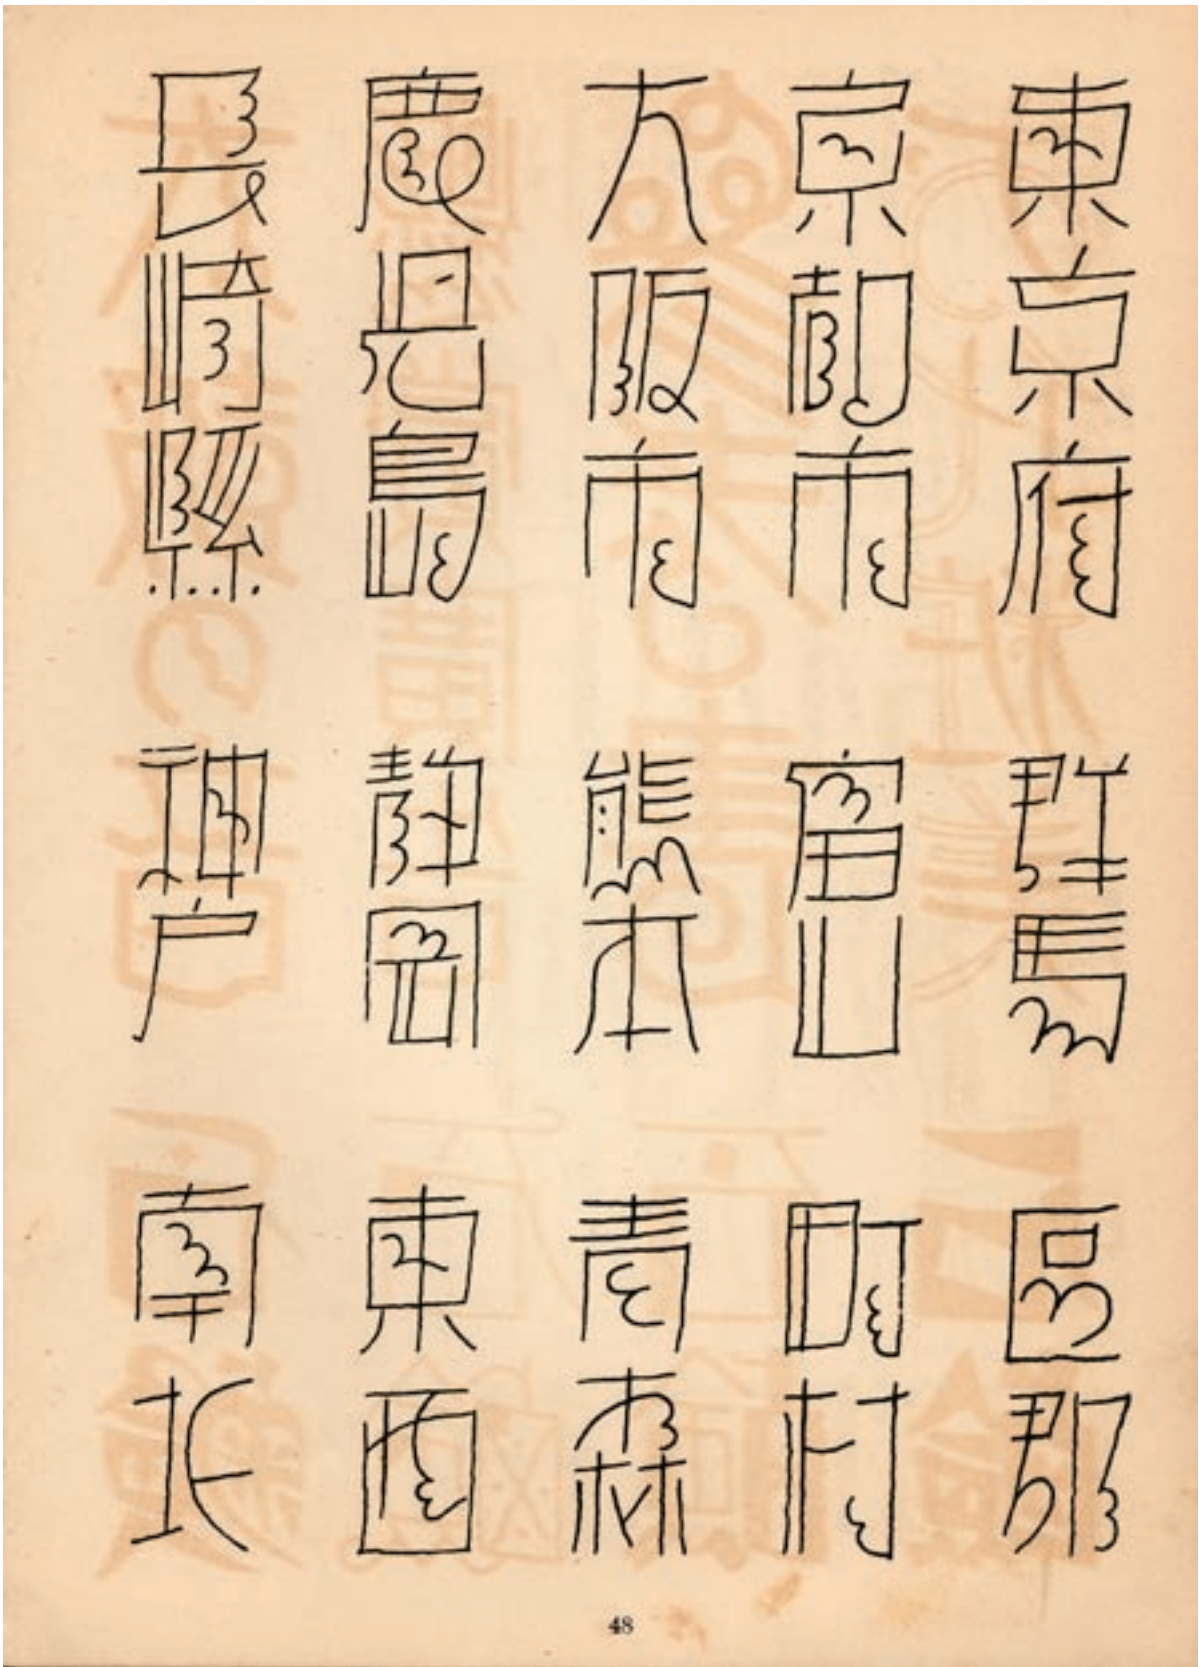 東京府
京都市
大阪市
鹿児島
長崎縣
群馬
富山
熊本
静岡
神戸
區郡
町村
青森
東西
南北
48